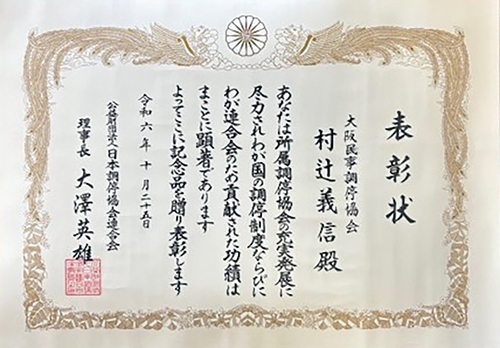 表彰状
大阪民事調停協会
村辻義信殿
あなたは所属調停協会の充実発展に
尽力されわが国の調停制度ならびに
わが連合会のため貢献された功績は
まことに顕著であります
よってここに記念品を贈り表彰します
令和六年十月二十五日
公益財団法人日本調停協会連合会
理事長 大澤英雄